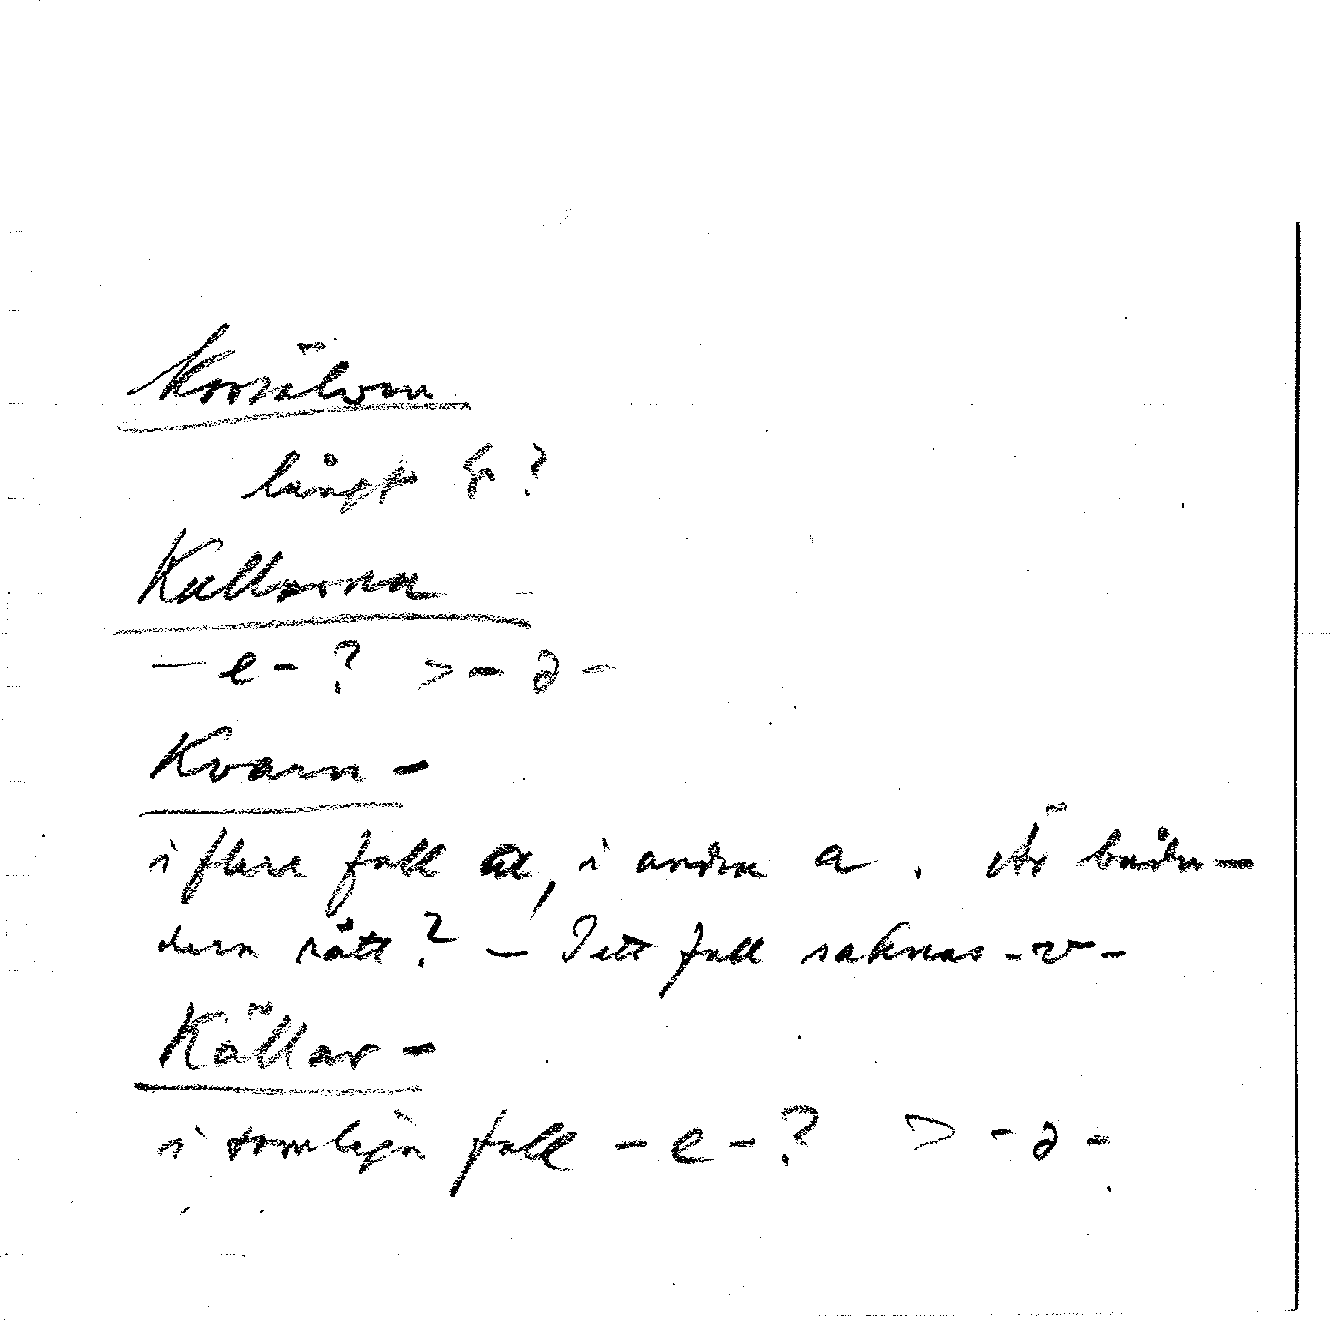 Korsälven
långt ?
Kullarna
- e - ? > - ə -
Kvarn -
i flera fall æ, i andra a. Är båda-
dera rätt? - I ett fall saknas -v-
Källar -
i somliga fall - e - ? > - ə -